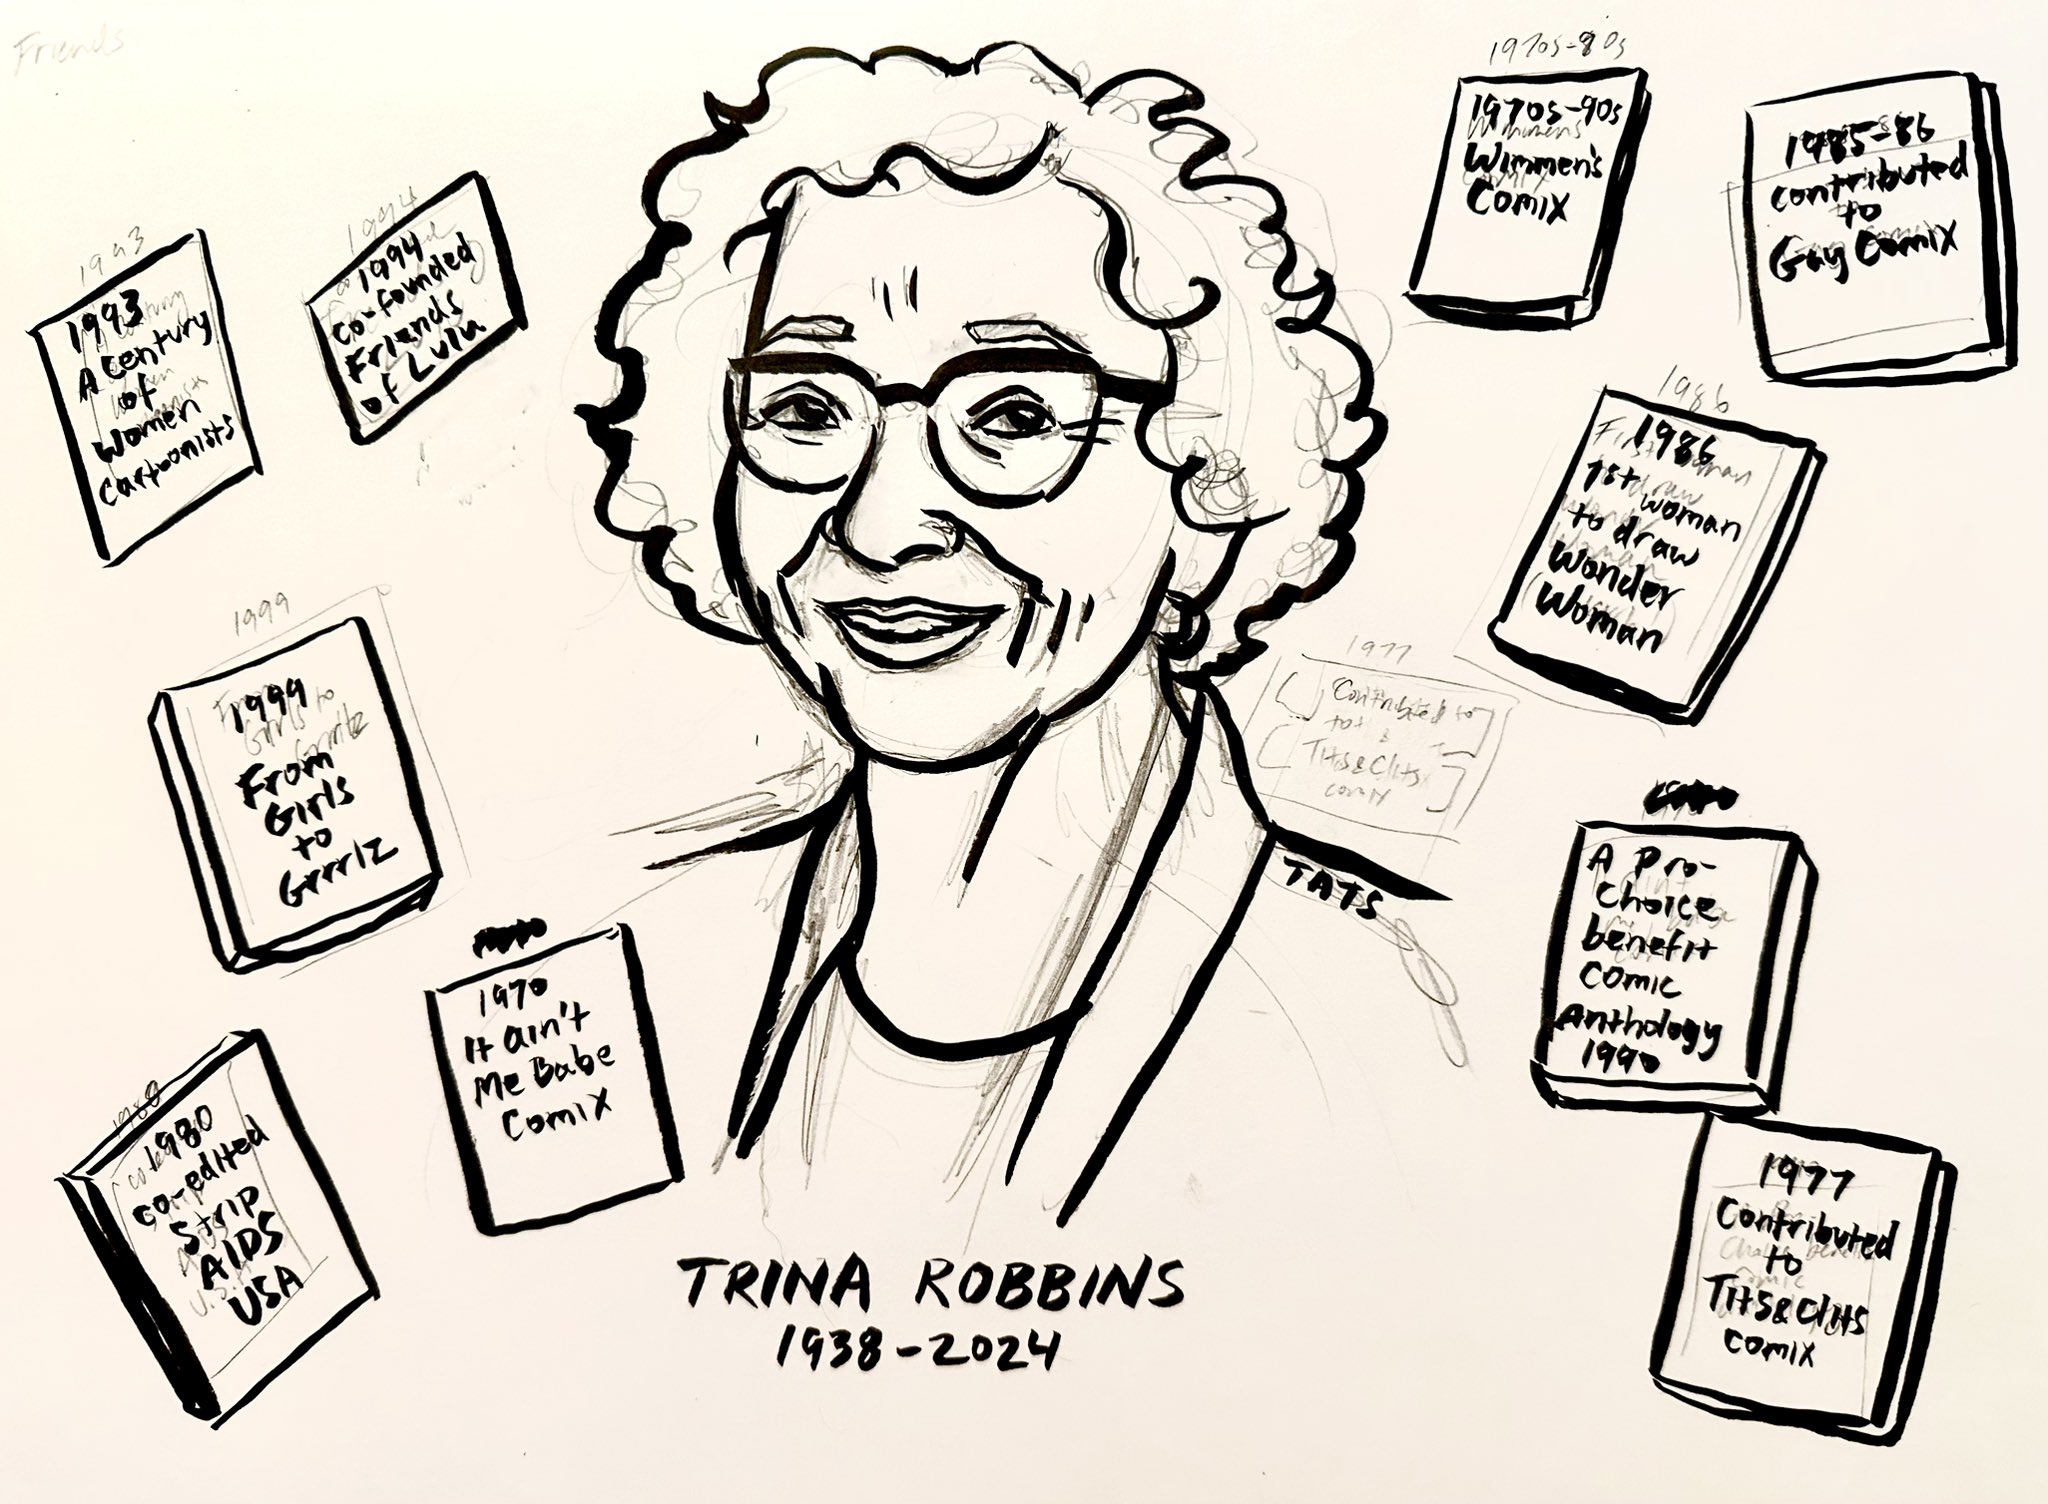 Friends
1993
1993
A Century
of
Women
Cartoonists
1994
1994
co-founded
Friends
of Lulu
1970s-80s
1970s-90s
Wimmen's
Comix
1985-86
contributed
to
Gay Comix
1986
1986
1st woman
to draw
Wonder
Woman
1999
1999
From
Girls
to
Grrrlz
1977
Contributed to
Tits & Clits
comix
TATS
A Pro-
Choice
benefit
comic
Anthology
1990
1970
It ain't
Me Babe
Comix
1980
1980
co-edited
Strip
AIDS
USA
1977
Contributed
to
Tits & Clits
comix
TRINA ROBBINS
1938-2024